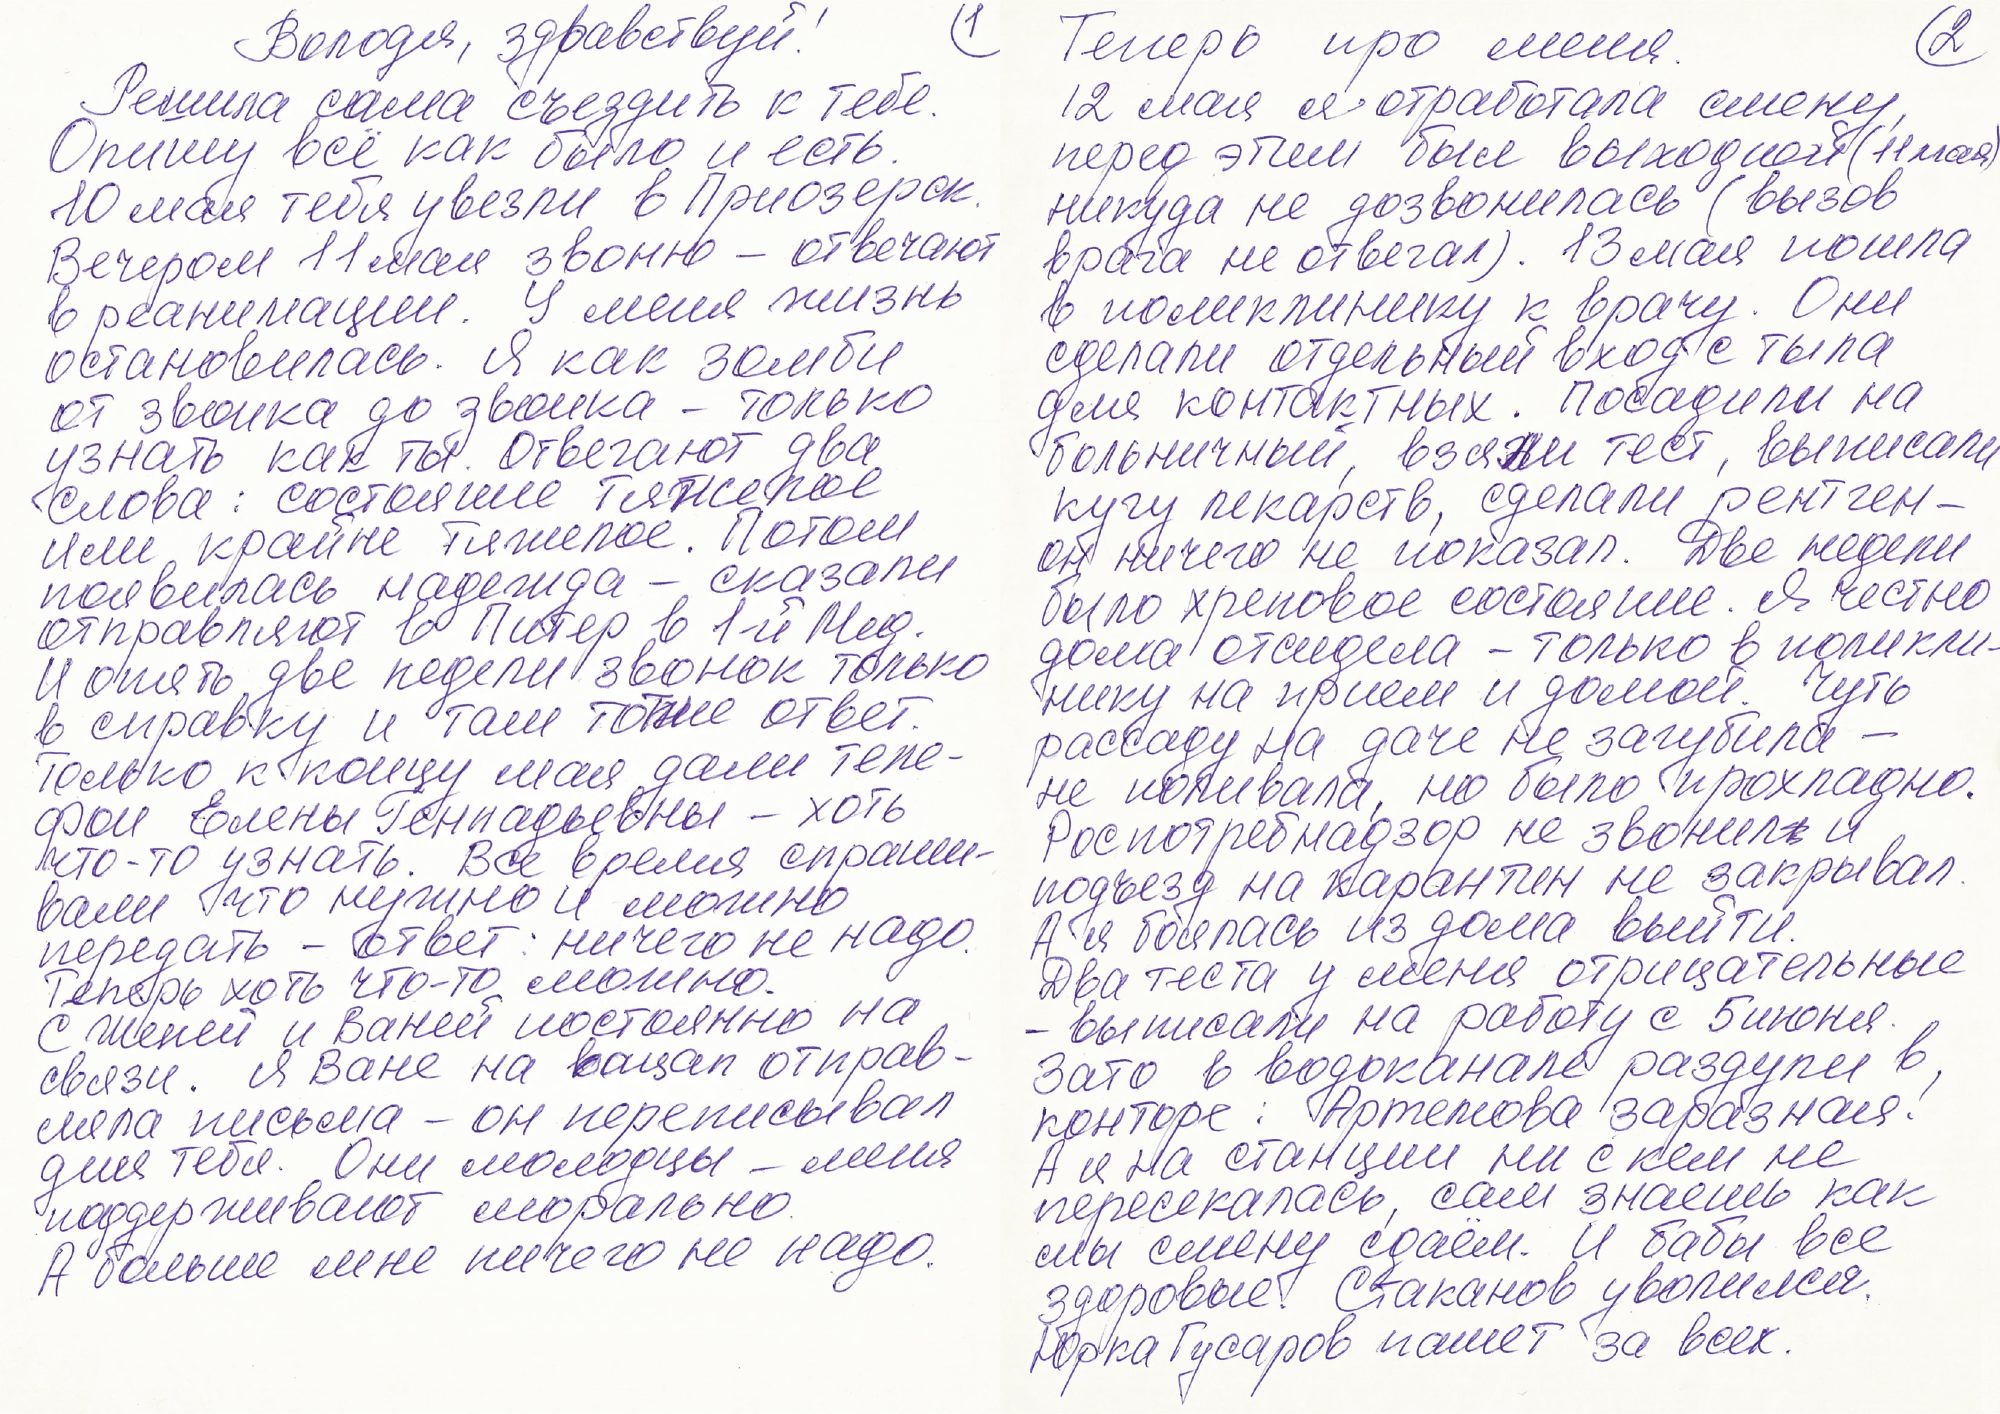 Володя, здравствуй!
1
Решила сама съездить к тебе.
Опишу всё как было и есть.
10 мая тебя увезли в Приозерск.
Вечером 11 мая звоню – отвечают
в реанимации. У меня жизнь
остановилась. Я как зомби
от звонка до звонка – только
узнать как ты. Отвечают два
слова: состояние тяжелое
или крайне тяжелое. Потом
появилась надежда – сказали
отправляют в Питер в 1-й Мед.
И опять две недели звонок только
в справку и там тот же ответ.
Только к концу мая дали теле-
фон Елены Геннадьевны – хоть
что-то узнать. Все время спраши-
вали что нужно и можно
передать – ответ: ничего не надо.
Теперь хоть что-то можно.
С Женей и Ваней постоянно на
связи. Я Ване на вацап отправ-
ляла письма – он переписывал
для тебя. Они молодцы – меня
поддерживают морально.
А больше мне ничего не надо.
2
Теперь про меня.
12 мая я отработала смену,
перед этим был выходной (11 мая)
никуда не дозвонилась (вызов
врача не отвечал). 13 мая пошла
в поликлинику к врачу. Они
сделали отдельный вход с тыла
для контактных. Посадили на
больничный, взяли тест, выписали
кучу лекарств, сделали рентген –
он ничего не показал. Две недели
было хреновое состояние. Я честно
дома отсидела – только в поликли-
нику на прием и домой. Чуть
рассаду на даче не загубила –
не поливала, но было прохладно.
Роспотребнадзор не звонил и
подъезд на карантин не закрывал.
А я боялась из дома выйти.
Два теста у меня отрицательные
– выписали на работу с 5 июня.
Зато в водоканале раздули в
конторе: Артемова заразная!
А я на станции ни с кем не
пересекалась, сам знаешь как
мы смену сдаём. И бабы все
здоровые! Стаканов уволился.
Юрка Гусаров пашет за всех.